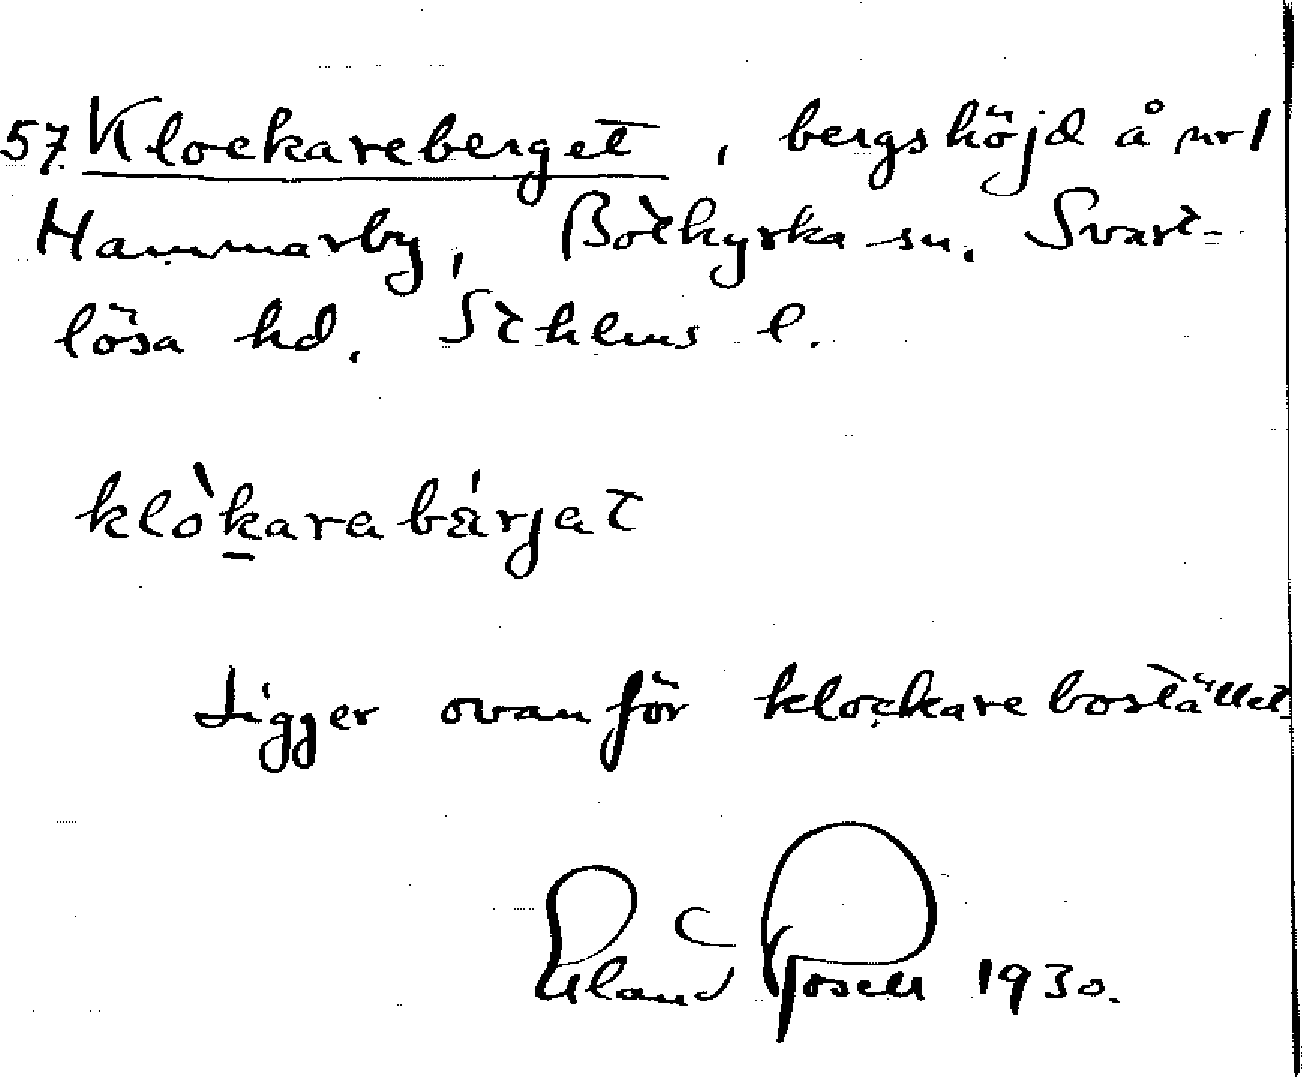 57. Klockareberget, bergshöjd å nr 1
Hammarby, Botkyrka sn. Svart-
lösa hd. Sthlms l.
klò̀karabärjat
Ligger ovanför klockarebostället
Erland Rosell 1930.